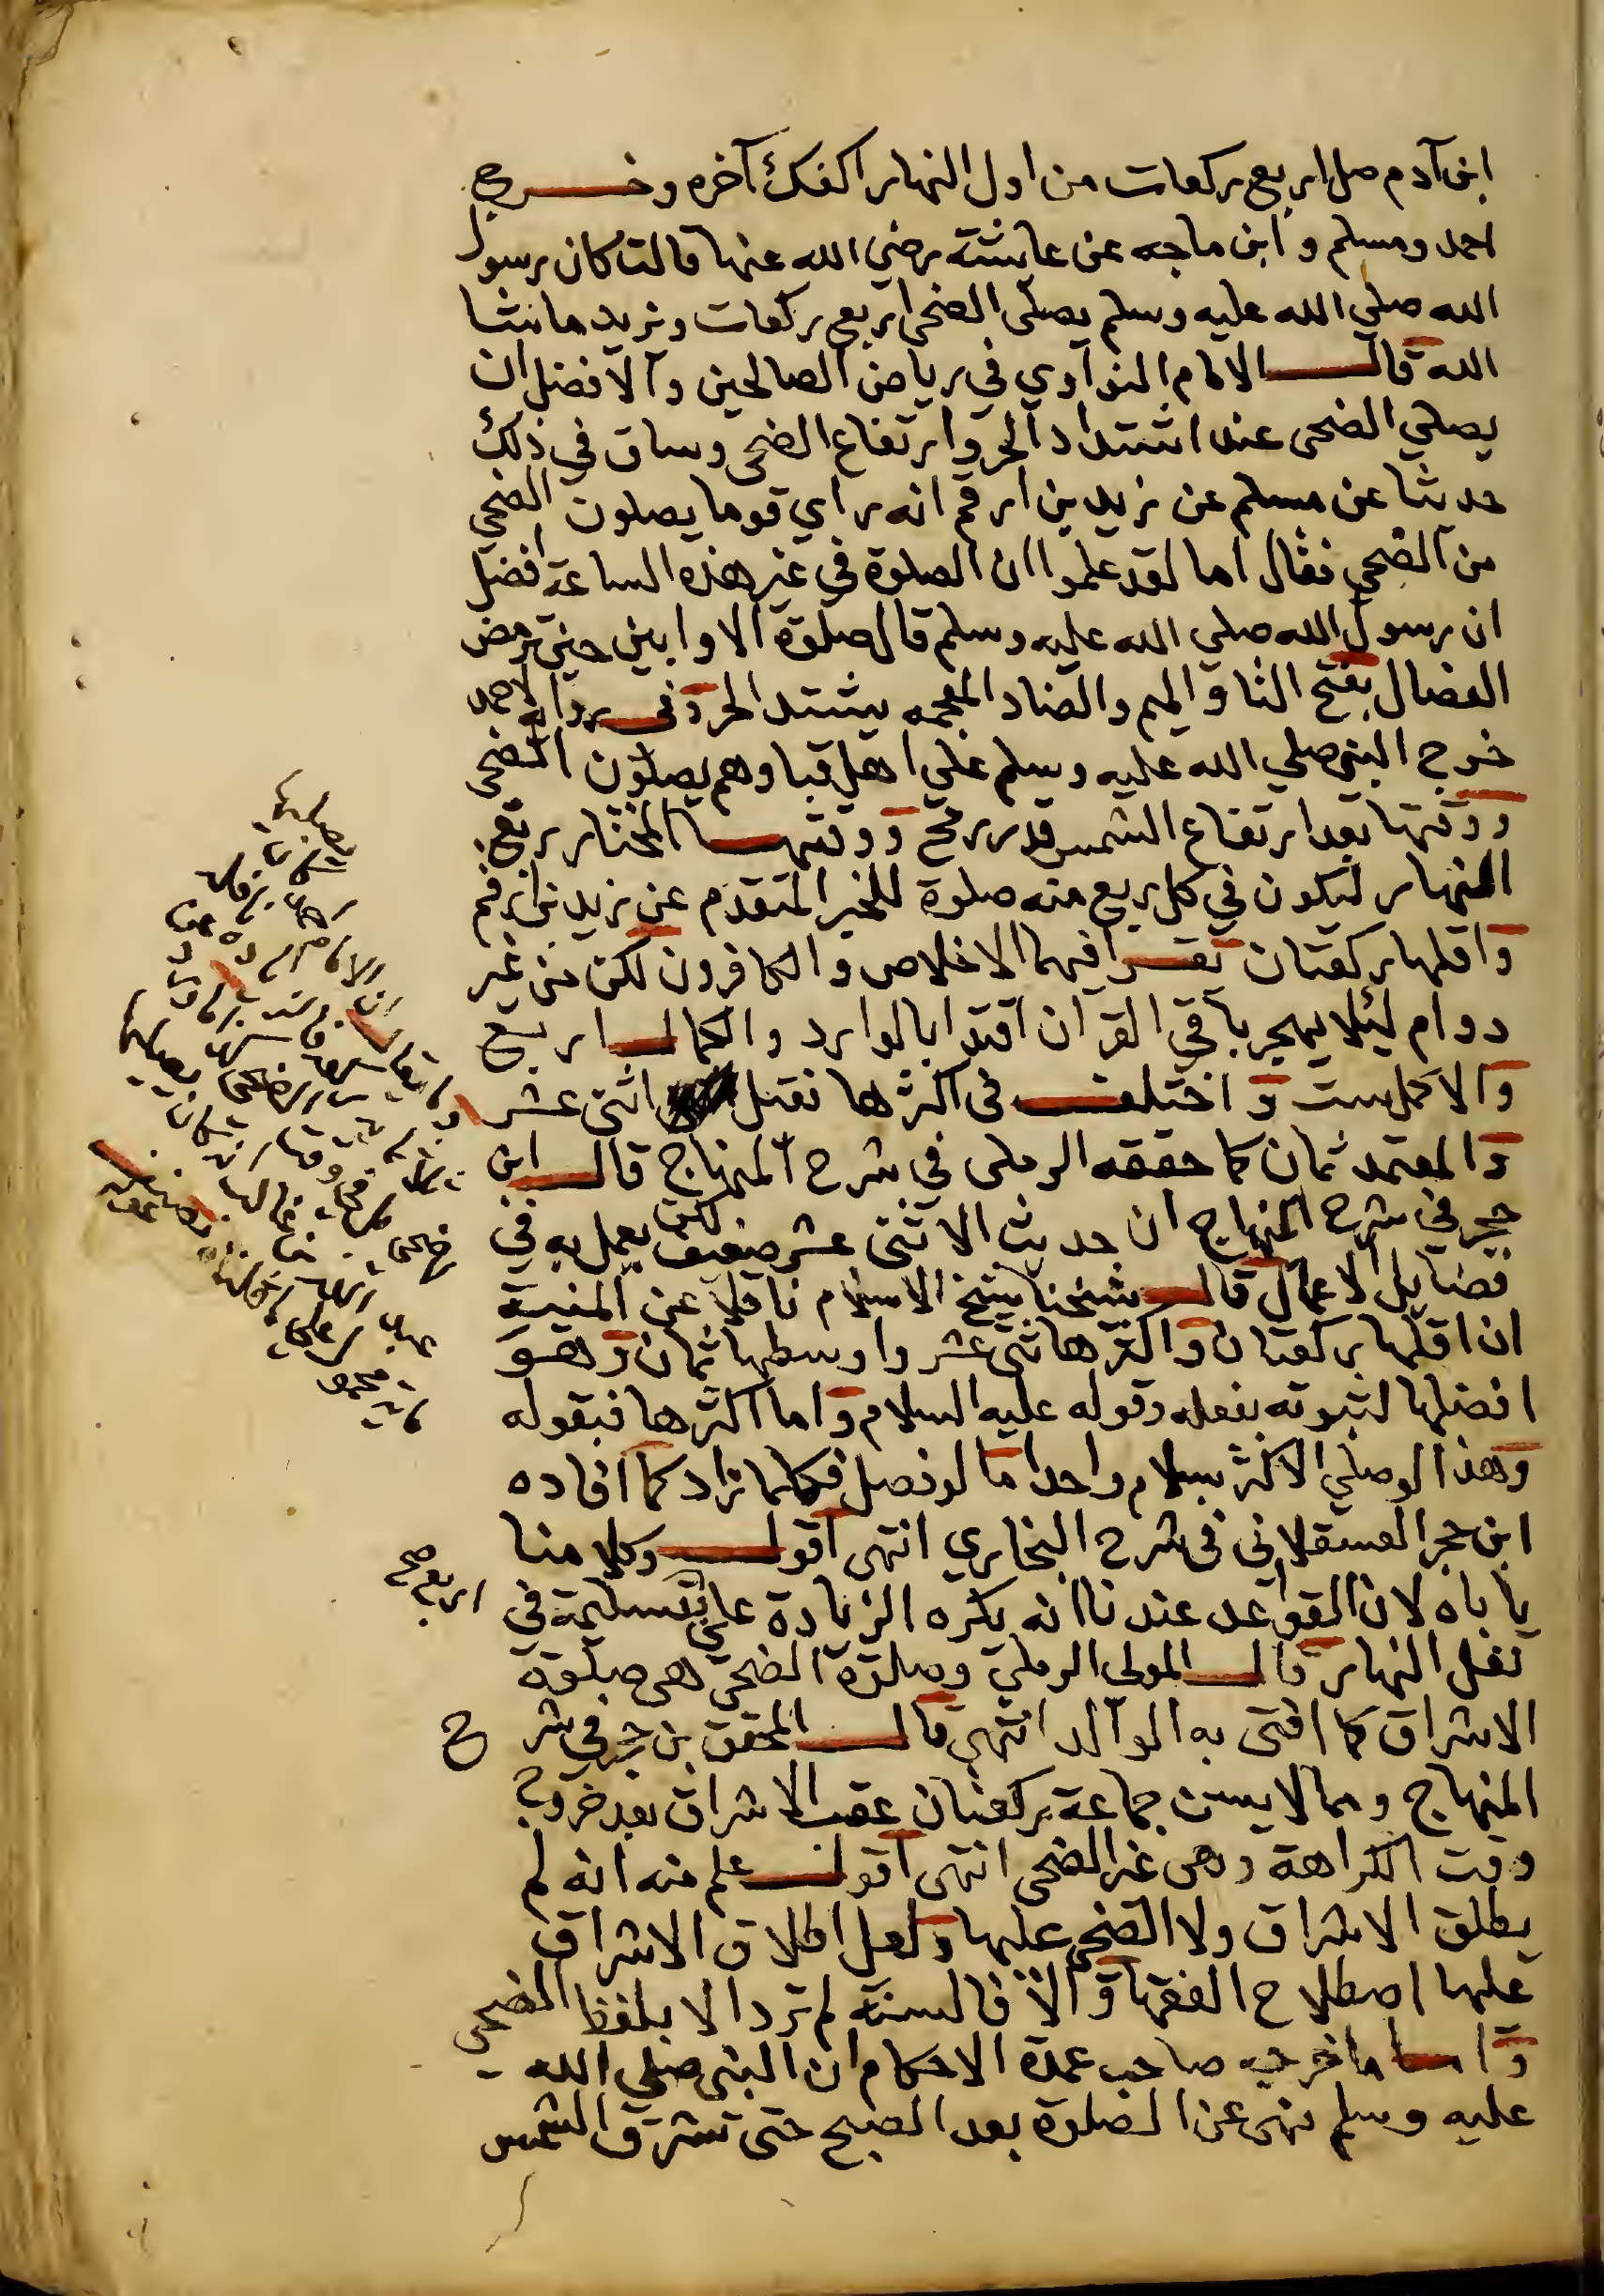 ابن آدم صل اربع ركعات من اول النهار اكفك آخره وخرج
احمد ومسلم وابن ماجه عن عايشة رضي الله عنها قالت كان رسول
الله صلي الله عليه وسلم يصلي الضحى اربع ركعات ويزيد ما شا
الله قال الامام النواوي في رياض الصالحين والافضل ان
يصلي الضحى عند اشتداد الحر وارتفاع الضحى وساق في ذلك
حديثا عن مسلم عن زيد بن ارقم انه راي قوما يصلون الضحي
من الضحي فقال اما لقد علموا ان الصلوة في غير هذه الساعة افضل
ان رسول الله صلي الله عليه وسلم قال صلوة الاوابين حين ترمض
الفصال بفتح التا والميم والضاد المعجمه يشتد الحر وفي رواية لاحمد
خرج النبي صلي الله عليه وسلم علي اهل قبا وهم يصلون الضحى
ووقتها بعد ارتفاع الشمس قدر رمح ووقتها المختار ربع
النهار ليكون في كل ربع منه صلوة للخبر المتقدم عن زيد بن ارقم
واقلها ركعتان يقرا فيهما الاخلاص والكافرون لكن من غير
دوام ليلا يهجر باقي القران اقتدا بالوارد والكمال اربع
والاكمل ست واختلف في اكثرها فقيل اثني عشر
والمعتمد ثمان كما حققه الرملى في شرح المنهاج قال ابن
حجر في شرح المنهاج ان حديث الاثني عشر ضعيف لكن يعمل به في
فضايل الاعمال قال شيخنا شيخ الاسلام ناقلا عن المنية
ان اقلها ركعتان واكثرها ثنى عشر واوسطها ثمان وهو
افضلها لثبوته بفعله وقوله عليه السلام واما اكثرها فبقوله
وهذا لو صلي الاكثر بسلام واحد اما لو فصل فكلما زاد كما افاده
ابن حجر العسقلاني في شرح البخاري انتهى اقول وكلامنا
ياباه لان القواعد عندنا انه يكره الزيادة على تسليمة في
اربع صح
نفل النهار قال المولى الرملي وصلوة الضحى هى صلوة
الاشراق كما افتى به الوالد انتهي قال المحقق بن حجر في شرح
المنهاج ومما لا يسن جماعة ركعتان عقب الاشراق بعد خروج
وقت الكراهة وهى غير الضحى انتهى اقول علم منه انه لم
يطلق الاشراق ولا الضحى عليها ولعل اطلاق الاشراق
عليها اصطلاح الفقها والا فالسنة لم ترد الا بلفظ الضحي
واما ما خرجه صاحب عمدة الاحكام ان النبي صلي الله
عليه وسلم نهى عن الصلوة بعد الصبح حتى تشرق الشمس